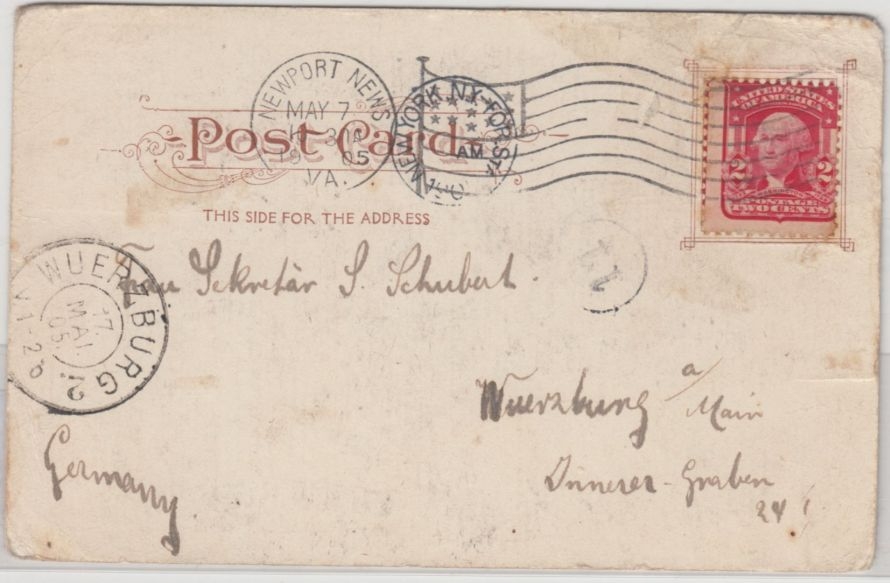 NEWPORT NEWS
MAY 7
1905
VA.
NEW YORK, N.Y. FOR. STA.
AM
190
UNITED STATES
OF AMERICA
2 2
WASHINGTON
POSTAGE
TWO CENTS
Post Card.
THIS SIDE FOR THE ADDRESS
Frau Sekretär S. Schubert.
WUERZBURG 2.
17
MAI.
05.
Wuerzburg a/ Main
Innerer-Graben
24
Germany